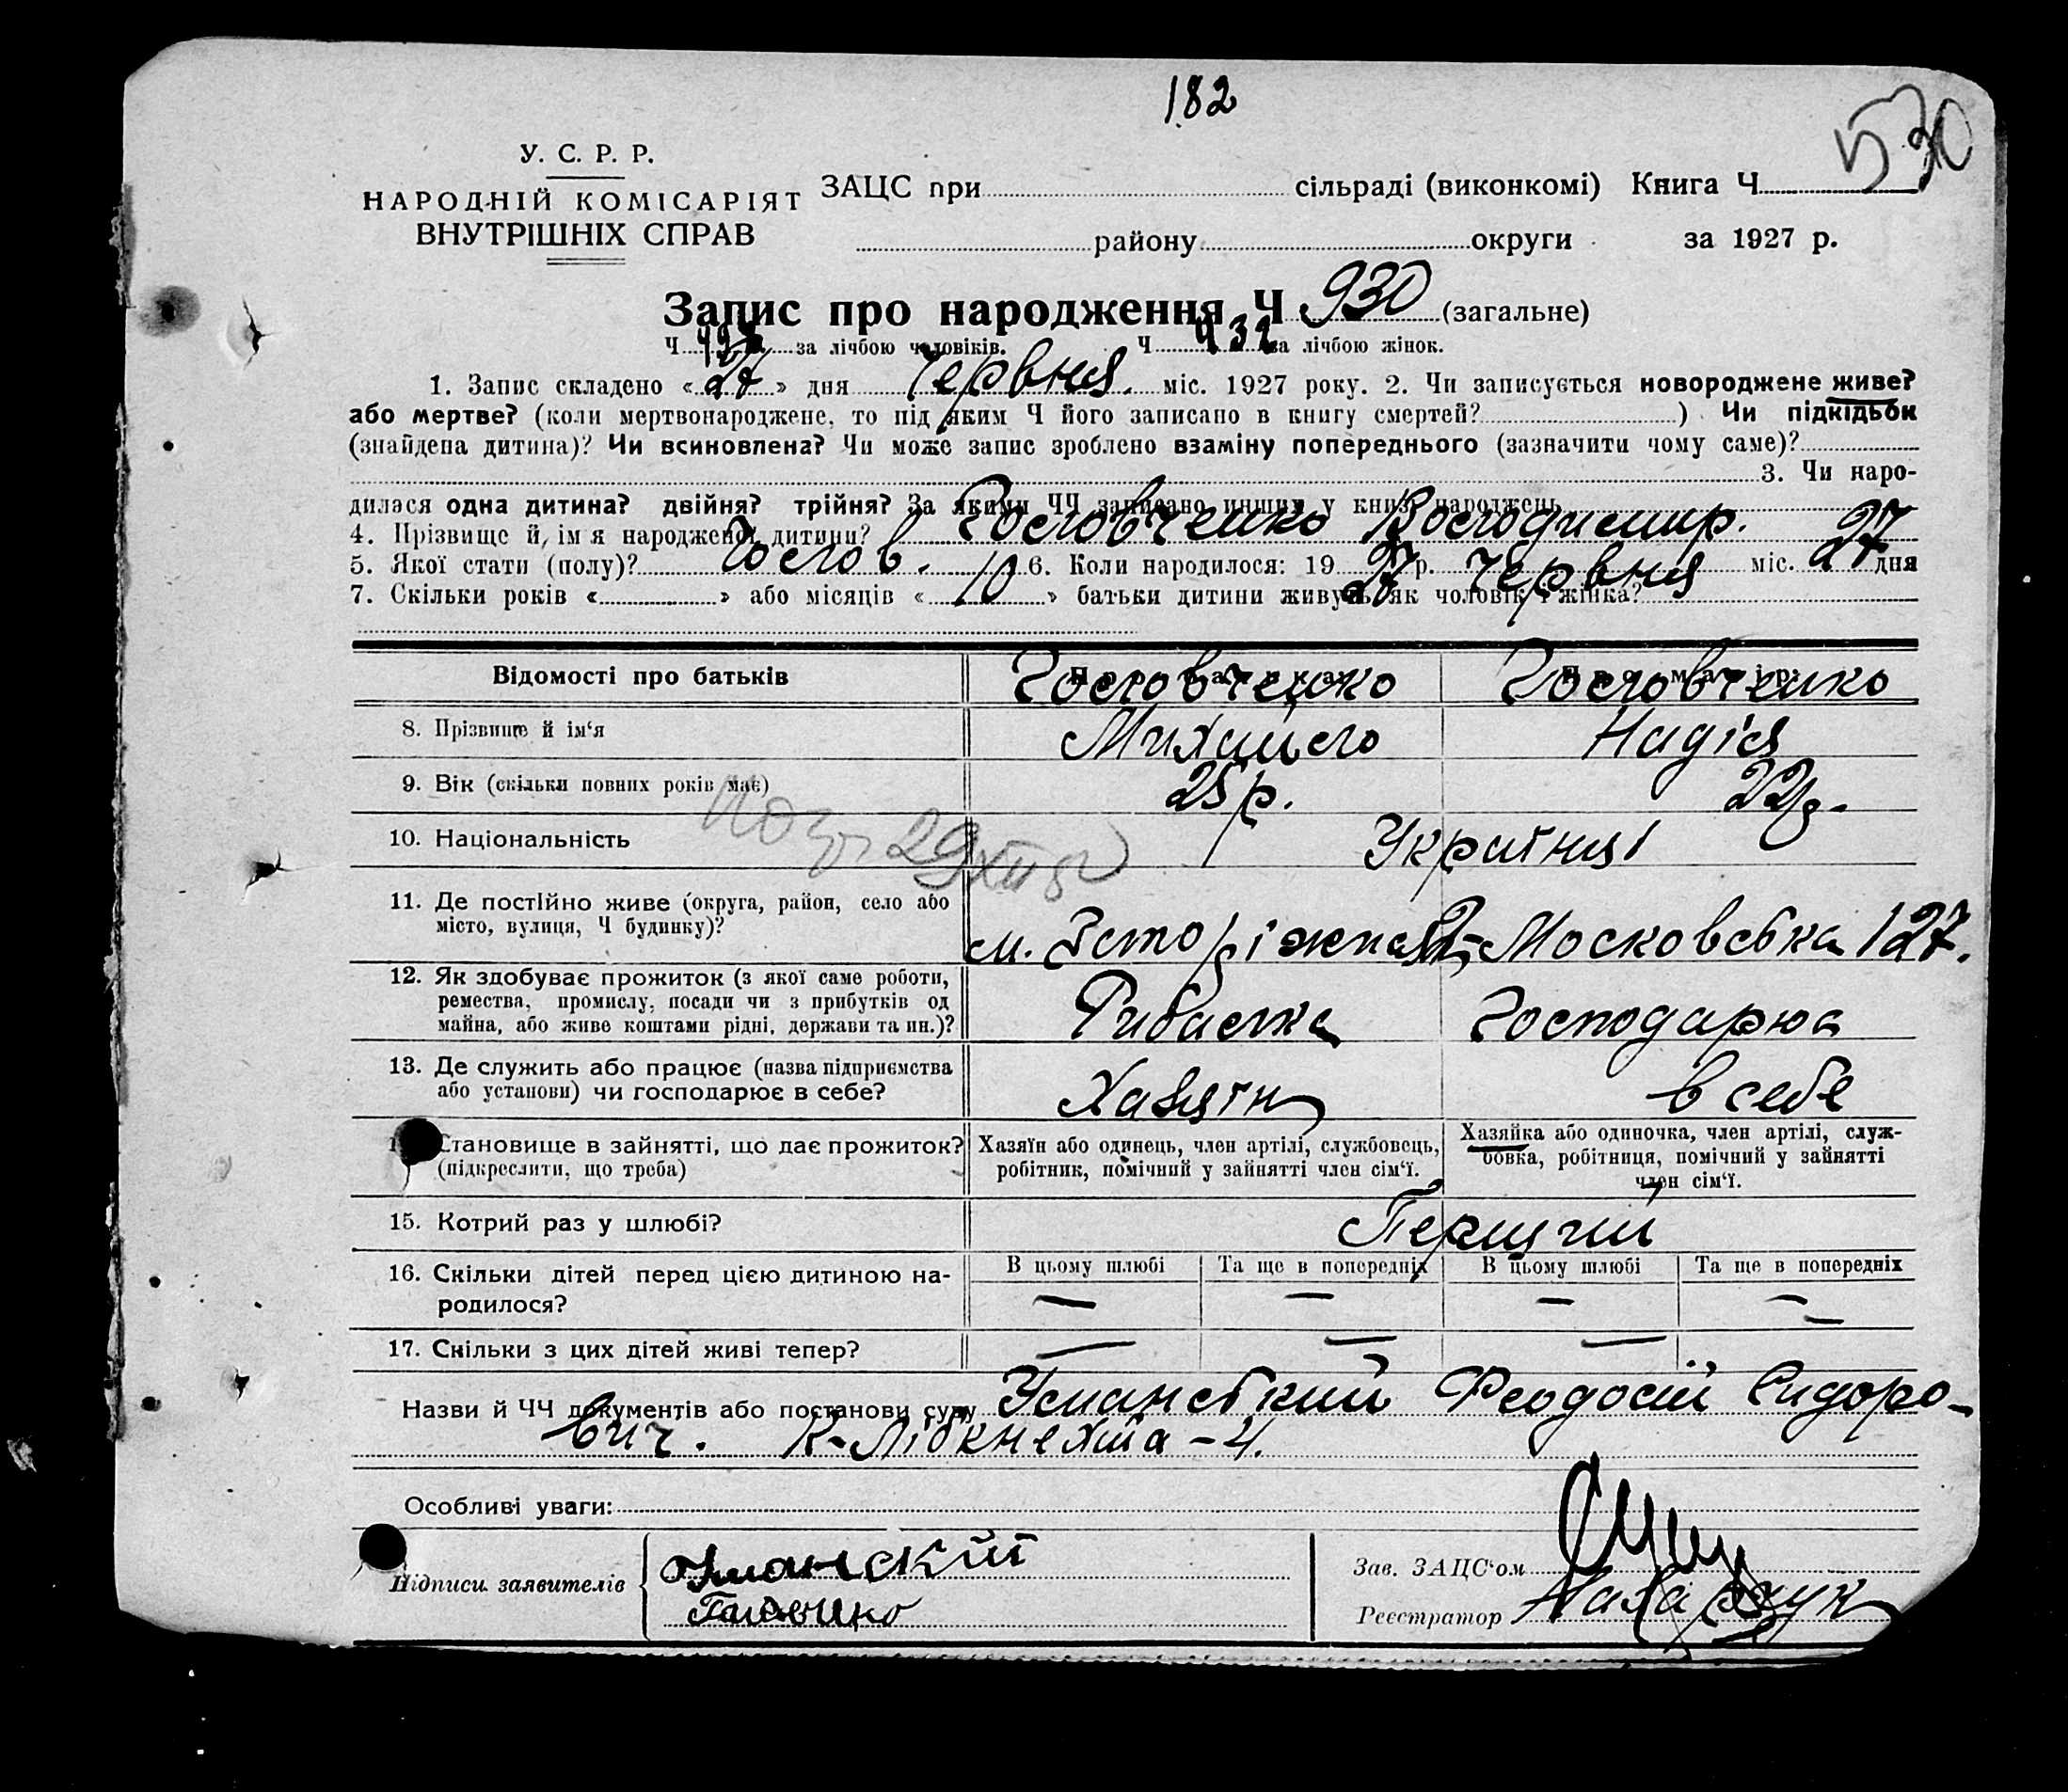 182
530
У. С. Р. Р.
НАРОДНІЙ КОМІСАРІЯТ
ВНУТРІШНІХ СПРАВ
ЗАЦС при сільраді (виконкомі) Книга Ч
району округи за 1927 р.
Запис про народження Ч 930 (загальне)
Ч за лічбою чоловіків. Ч 432 за лічбою жінок.
1. Запис складено « 27 » дня Червня міс. 1927 року. 2. Чи записується новороджене живе?
або мертве? (коли мертвонароджене, то під яким Ч його записано в книгу смертей? ) Чи підкідьок
(знайдена дитина)? Чи всиновлена? Чи може запис зроблено взаміну попереднього (зазначити чому саме)?
3. Чи наро-
дилася одна дитина? двійня? трійня? За якими ЧЧ записано инших у книзі народжень
4. Прізвище й ім я народженої дитини? Головченко Володимир.
5. Якої стати (полу)? Чолов. 6. Коли народилося: 19 27 р. Червня міс. 27 дня
7. Скільки років « » або місяців « 10 » батьки дитини живуть як чоловік і жінка?
Відомості про батьків Про батька Про матір
8. Прізвище й ім‘я Головченко Михайло Головченко Надія
9. Вік (скільки повних років має) 25 р. 22 р.
10. Національність Українці
11. Де постійно живе (округа, район, село або
місто, вулиця, Ч будинку)? Московська 127.
12. Як здобуває прожиток (з якої саме роботи,
ремества, промислу, посади чи з прибутків од
майна, або живе коштами рідні, держави та ин.)? Рибалка Господарює
13. Де служить або працює (назва підприємства
або установи) чи господарює в себе? Хазяїн в себе
Становище в зайнятті, що дає прожиток?
(підкреслити, що треба)
Хазяїн або одинець, член артілі, службовець,
робітник, помічний у зайнятті член сім‘ї.
Хазяйка або одиночка, член артілі, служ-
бовка, робітниця, помічний у зайнятті
член сім‘ї.
15. Котрий раз у шлюбі? Перший
16. Скільки дітей перед цією дитиною на-
родилося?
В цьому шлюбі Та ще в попередніх В цьому шлюбі Та ще в попередніх
— — — —
17. Скільки з цих дітей живі тепер? — — — —
Назви й ЧЧ документів або постанови суду Уманський Феодосій Сидоро-
вич. К-Лібкнехта - 4.
Особливі уваги:
Підписи заявителів Уманский
Зав. ЗАЦС‘ом
Реєстратор